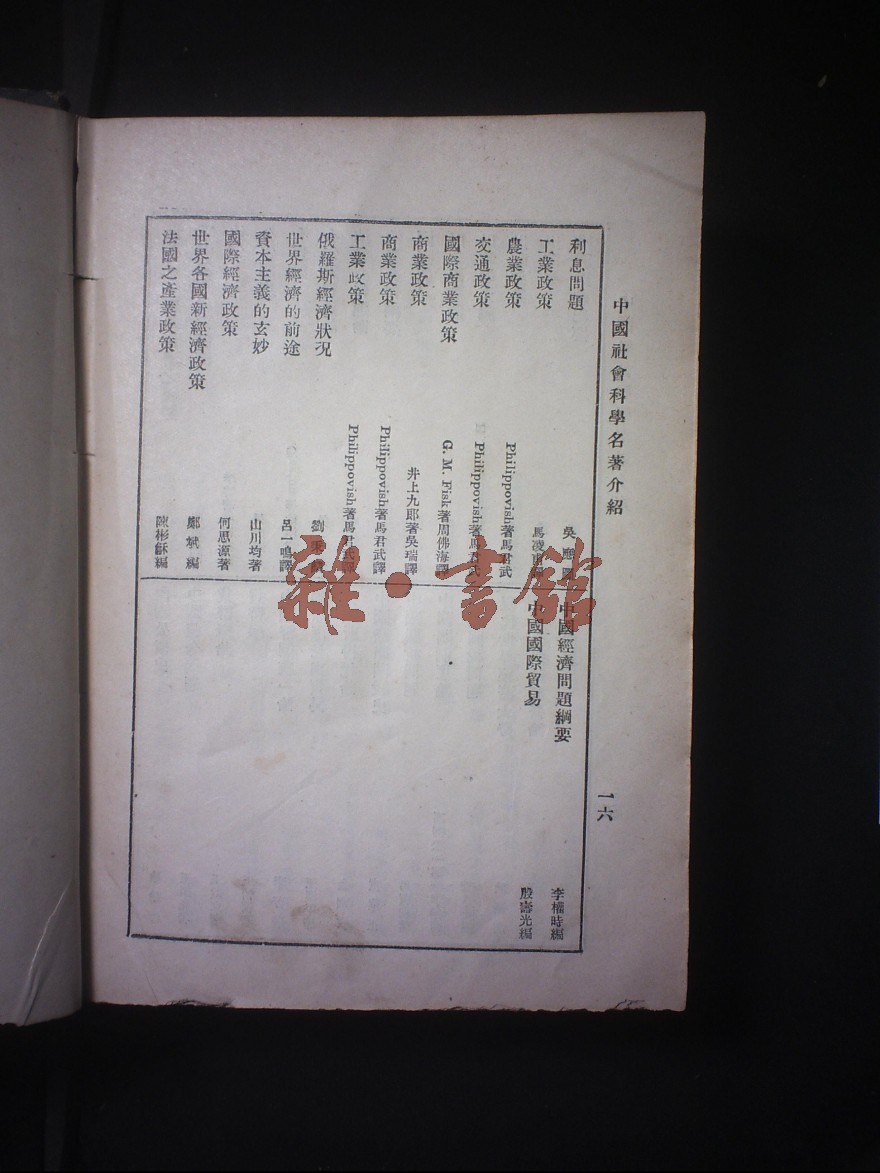 中國社會科學名著介紹
一六
利息問題 吳應圖
工業政策 馬凌甫譯
農業政策 Philippovish著馬君武
交通政策 Philippovish著馬君武
國際商業政策 G. M. Fisk著周佛海譯
商業政策 井上九郎著吳瑞譯
商業政策 Philippovish著馬君武譯
工業政策 Philippovish著馬君武譯
俄羅斯經濟狀況 劉
世界經濟的前途 呂一鳴譯
資本主義的玄妙 山川均著
國際經濟政策 何思源著
世界各國新經濟政策 鄭斌編
法國之產業政策 陳彬龢編
中國經濟問題綱要 李權時編
中國國際貿易 殷壽光編
雜·書館